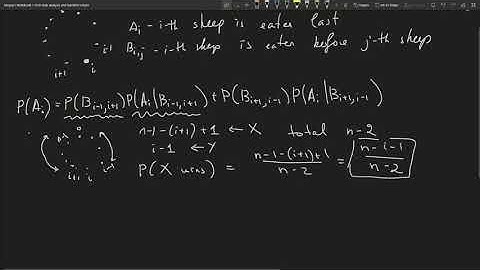 Aᵢ - i-th sheep is eaten last
Bᵢ,ⱼ - i-th sheep is eaten before j-th sheep
i+1 i
P(Aᵢ) = P(Bᵢ₋₁,ᵢ₊₁)P(Aᵢ|Bᵢ₋₁,ᵢ₊₁) + P(Bᵢ₊₁,ᵢ₋₁)P(Aᵢ|Bᵢ₊₁,ᵢ₋₁)
n-1-(i+1)+1 ← X total n-2
i-1 ← Y
i+1 i i-1
P(X wins) = (n-1-(i+1)+1)/(n-2) = (n-i-1)/(n-2)